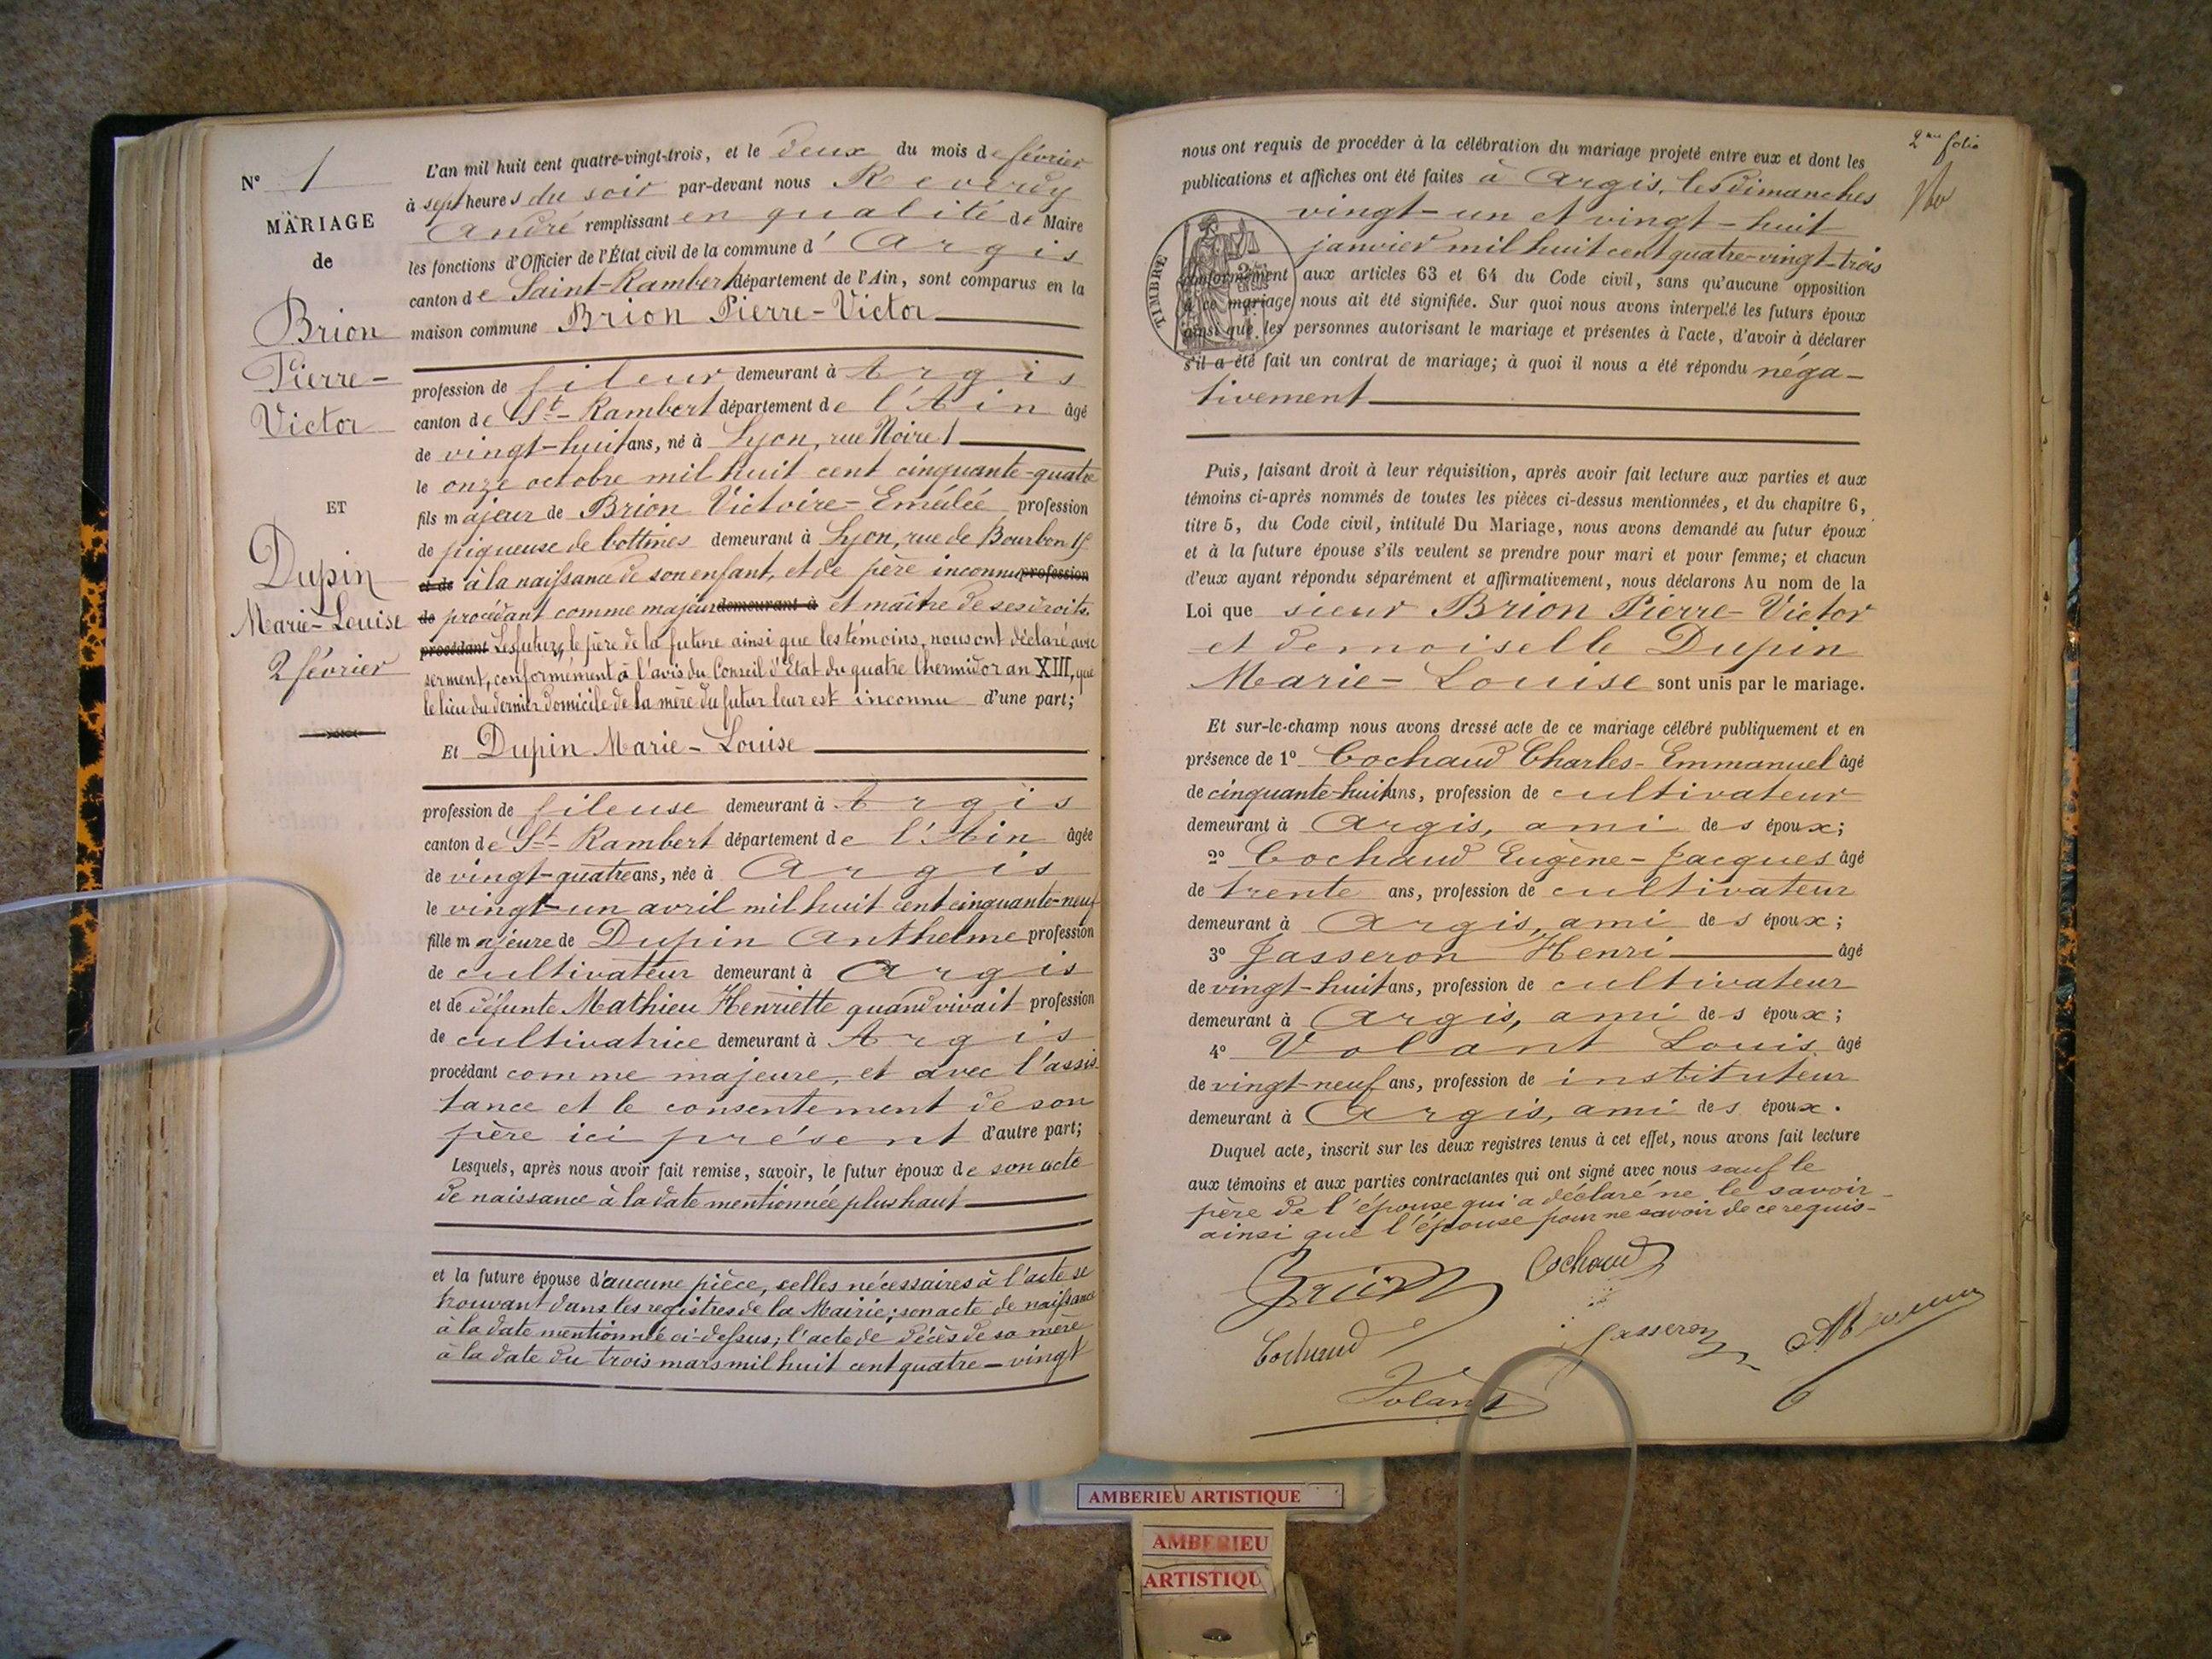 N° 1
MARIAGE
de
Brion
Pierre-
Victor
ET
Dupin
Marie-Louise
2 février
L'an mil huit cent quatre-vingt-trois, et le deux du mois de février
à sept heures du soir par-devant nous Reverdy
André remplissant en qualité de Maire
les fonctions d'Officier de l'État civil de la commune d'Argis
canton de Saint-Rambert département de l'Ain, sont comparus en la
maison commune Brion Pierre-Victor
profession de fileur demeurant à Argis
canton de St-Rambert département de l'Ain âgé
de vingt-huit ans, né à Lyon, rue Noire 1
le onze octobre mil huit cent cinquante-quatre
fils majeur de Brion Victoire-Emélée profession
de piqueuse de bottines demeurant à Lyon, rue de Bourbon
et de à la naissance de son enfant, et de père inconnu profession
de procédant comme majeur demeurant à et maître de ses droits.
procédant Les futurs, le père de la future ainsi que les témoins, nous ont déclaré avec
serment, conformément à l'avis du Conseil d'Etat du quatre thermidor an XIII, que
le lieu du dernier domicile de la mère du futur leur est inconnu d'une part;
Et Dupin Marie-Louise
profession de fileuse demeurant à Argis
canton de St-Rambert département de l'Ain âgée
de vingt-quatre ans, née à Argis
le vingt-un avril mil huit cent cinquante-neuf
fille majeure de Dupin Anthelme profession
de cultivateur demeurant à Argis
et de défunte Mathieu Henriette quand vivait profession
de cultivatrice demeurant à Argis
procédant comme majeure, et avec l'assis
tance et le consentement de son
père ici présent d'autre part;
Lesquels, après nous avoir fait remise, savoir, le futur époux de son acte
de naissance à la date mentionnée plus haut
et la future épouse d'aucune pièce, celles nécessaires à l'acte se
trouvant dans les registres de la Mairie; son acte de naissance
à la date mentionnée ci-dessus; l'acte de décès de sa mère
à la date du trois mars mil huit cent quatre-vingt
2me folio
nous ont requis de procéder à la célébration du mariage projeté entre eux et dont les
publications et affiches ont été faites à Argis, les dimanches
vingt-un et vingt-huit
janvier mil huit cent quatre-vingt-trois
TIMBRE
conformément aux articles 63 et 64 du Code civil, sans qu'aucune opposition
à ce mariage nous ait été signifiée. Sur quoi nous avons interpellé les futurs époux
ainsi que les personnes autorisant le mariage et présentes à l'acte, d'avoir à déclarer
s'il a été fait un contrat de mariage; à quoi il nous a été répondu néga-
tivement
Puis, faisant droit à leur réquisition, après avoir fait lecture aux parties et aux
témoins ci-après nommés de toutes les pièces ci-dessus mentionnées, et du chapitre 6,
titre 5, du Code civil, intitulé Du Mariage, nous avons demandé au futur époux
et à la future épouse s'ils veulent se prendre pour mari et pour femme; et chacun
d'eux ayant répondu séparément et affirmativement, nous déclarons Au nom de la
Loi que sieur Brion Pierre-Victor
et demoiselle Dupin
Marie-Louise sont unis par le mariage.
Et sur-le-champ nous avons dressé acte de ce mariage célébré publiquement et en
présence de 1° Cochaud Charles-Emmanuel âgé
de cinquante-huit ans, profession de cultivateur
demeurant à Argis, ami des époux;
2° Cochaud Eugène-Jacques âgé
de trente ans, profession de cultivateur
demeurant à Argis, ami des époux;
3° Jasseron Henri âgé
de vingt-huit ans, profession de cultivateur
demeurant à Argis, ami des époux;
4° Volant Louis âgé
de vingt-neuf ans, profession de instituteur
demeurant à Argis, ami des époux.
Duquel acte, inscrit sur les deux registres tenus à cet effet, nous avons fait lecture
aux témoins et aux parties contractantes qui ont signé avec nous sauf le
père de l'épouse qui a déclaré ne le savoir
ainsi que l'épouse pour ne savoir de ce requis-
Brion Cochaud
Cochaud Jasseron
Volant
AMBERIEU ARTISTIQUE
AMBERIEU
ARTISTIQU